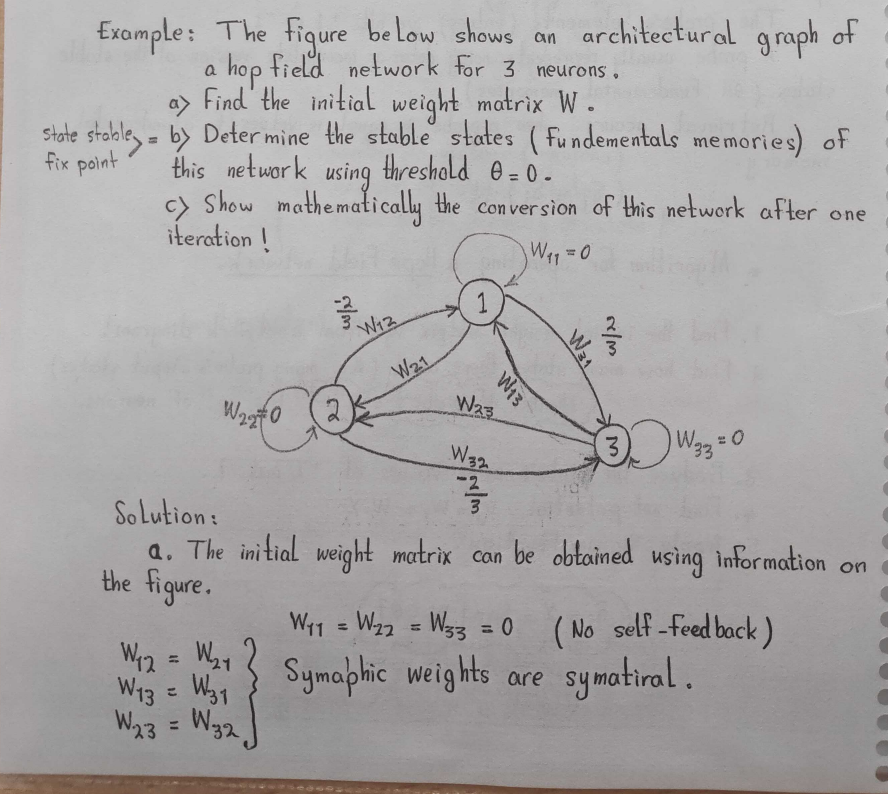 Example: The figure below shows an architectural graph of
a hop field network for 3 neurons.
a) Find the initial weight matrix W.
state stable, fix point } = b) Determine the stable states (fundementals memories) of
this network using threshold θ = 0.
c) Show mathematically the conversion of this network after one
iteration!
W11 = 0
1
-2/3 W12
W21
W31 2/3
W13
W22=0
2
W23
3
W33 = 0
W32
-2/3
Solution:
a. The initial weight matrix can be obtained using information on
the figure.
W11 = W22 = W33 = 0 (No self-feedback)
W12 = W21
W13 = W31 } Symaphic weights are symatiral.
W23 = W32